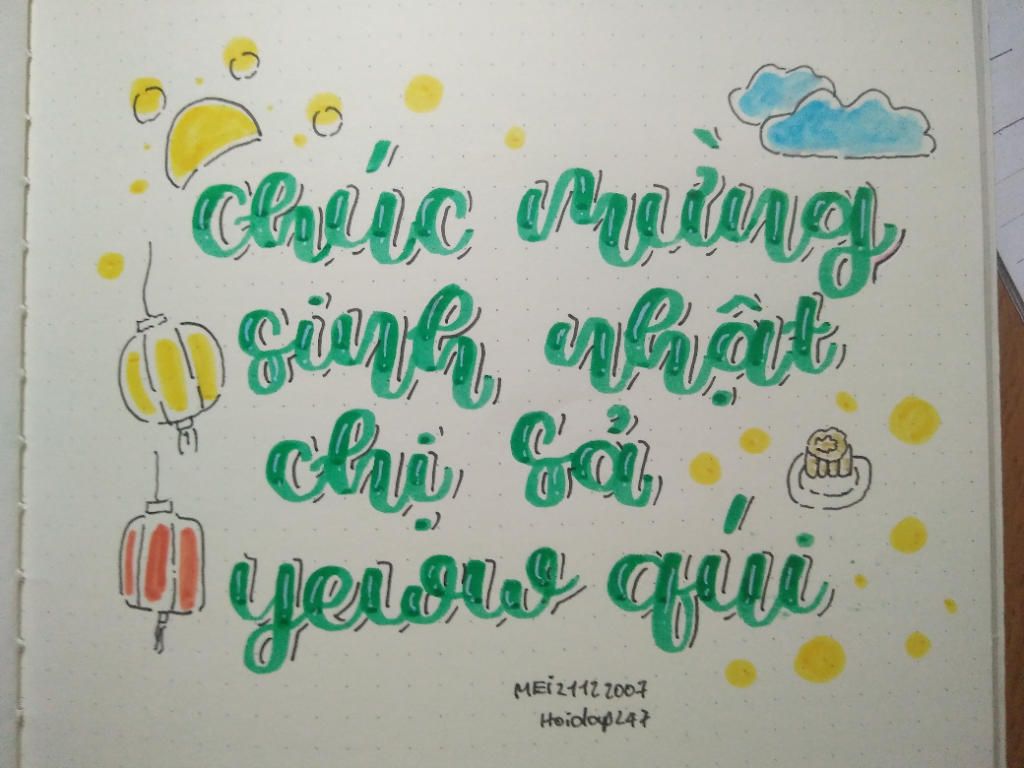 chúc mừng
sinh nhật
chị Sả
yeww qúi
MEi21122007
Hoidap247